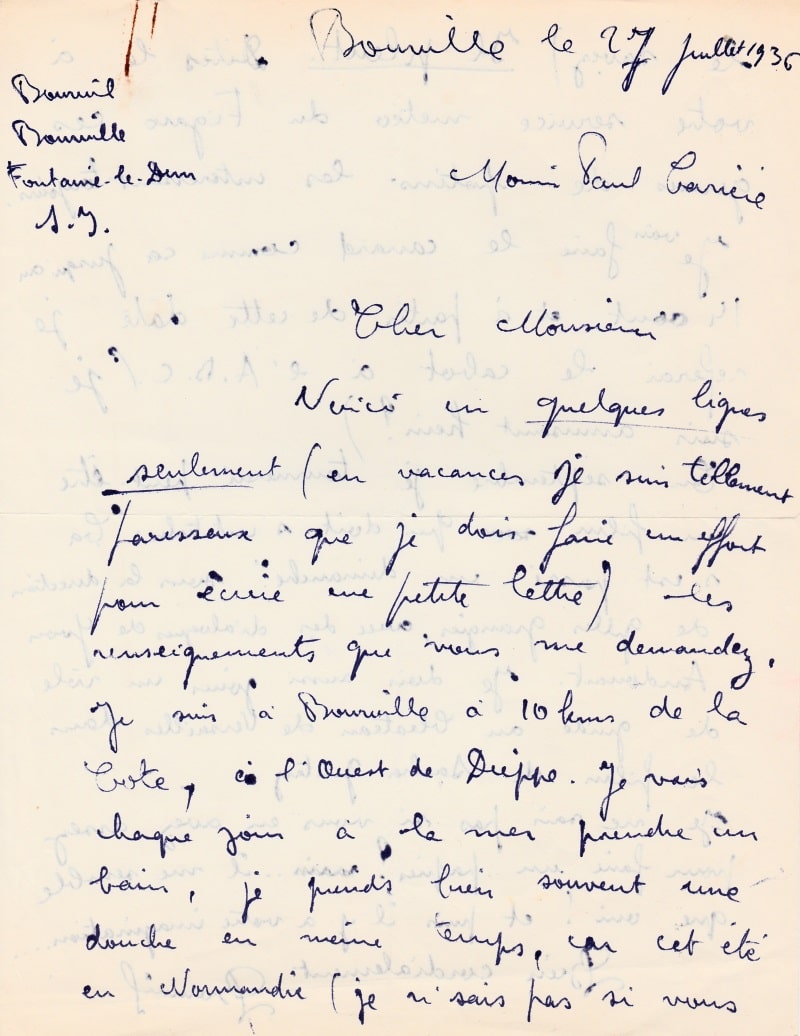 Bourville le 27 juillet 1936
Bourvil
Bourville
Fontaine-le-Dun
S.I.
Monsieur Paul Carrière
Cher Monsieur
Voici en quelques lignes
seulement (en vacances je suis tellement
paresseux que je dois faire un effort
pour écrire une petite lettre) les
renseignements que vous me demandez.
Je suis à Bourville à 10 kms de la
Côte, à l'Ouest de Dieppe. Je vais
chaque jour à la mer prendre un
bain, je prends bien souvent une
douche en même temps, car cet été
en Normandie (je n'sais pas si vous